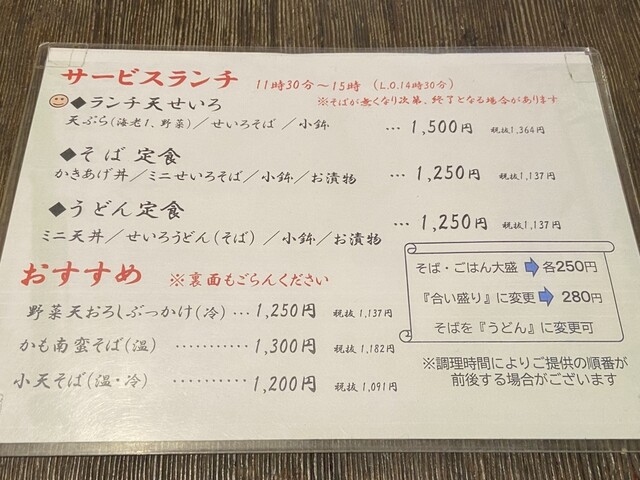 サービスランチ 11時30分～15時 (L.O.14時30分)
◆ランチ天せいろ ※そばが無くなり次第、終了となる場合があります
天ぷら(海老1、野菜)／せいろそば／小鉢 … 1,500円 税抜1,364円
◆そば定食
かきあげ丼／ミニせいろそば／小鉢／お漬物 … 1,250円 税抜1,137円
◆うどん定食
ミニ天丼／せいろうどん(そば)／小鉢／お漬物 … 1,250円 税抜1,137円
おすすめ ※裏面もごらんください
野菜天おろしぶっかけ(冷) … 1,250円 税抜1,137円
かも南蛮そば(温) ……… 1,300円 税抜1,182円
小天そば(温・冷) ……… 1,200円 税抜1,091円
そば・ごはん大盛 ➡ 各250円
『合い盛り』に変更 ➡ 280円
そばを『うどん』に変更可
※調理時間によりご提供の順番が
前後する場合がございます